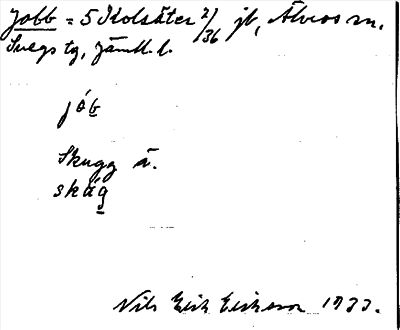 Jobb = 5 Kolsäter 2/36 jb, Älvros sn,
Svegs tg, Jämtl. l.
jób
Skugg å.
skág
Nils Erik Eriksson 1933.